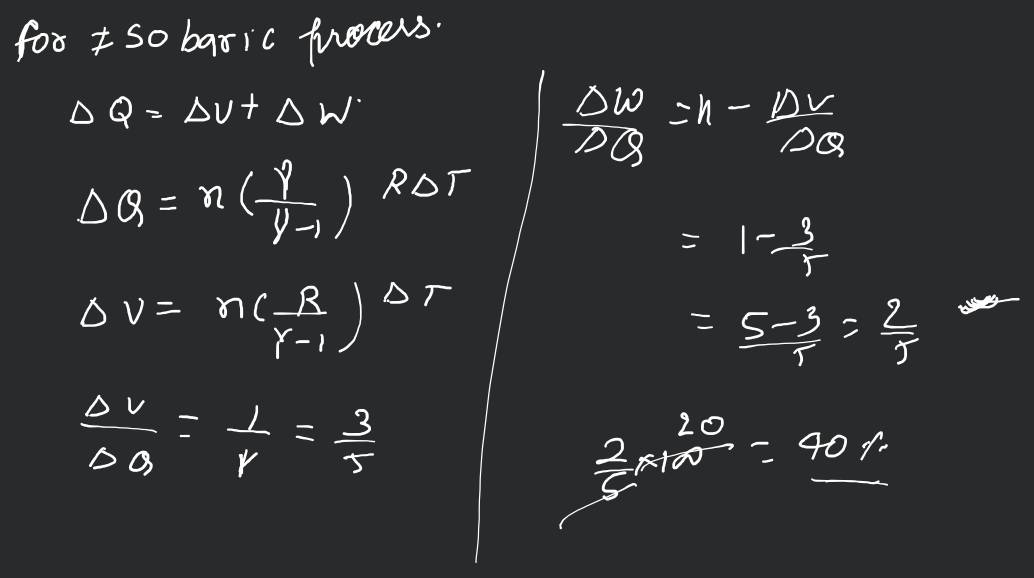 for Isobaric process.
ΔQ = ΔU + ΔW
ΔQ = n(γ/γ-1) RΔT
ΔU = n(R/γ-1) ΔT
ΔU/ΔQ = 1/γ = 3/5
ΔW/ΔQ = n - ΔU/ΔQ
= 1 - 3/5
= 5-3/5 = 2/5
2/5 × 100 20 = 40 %